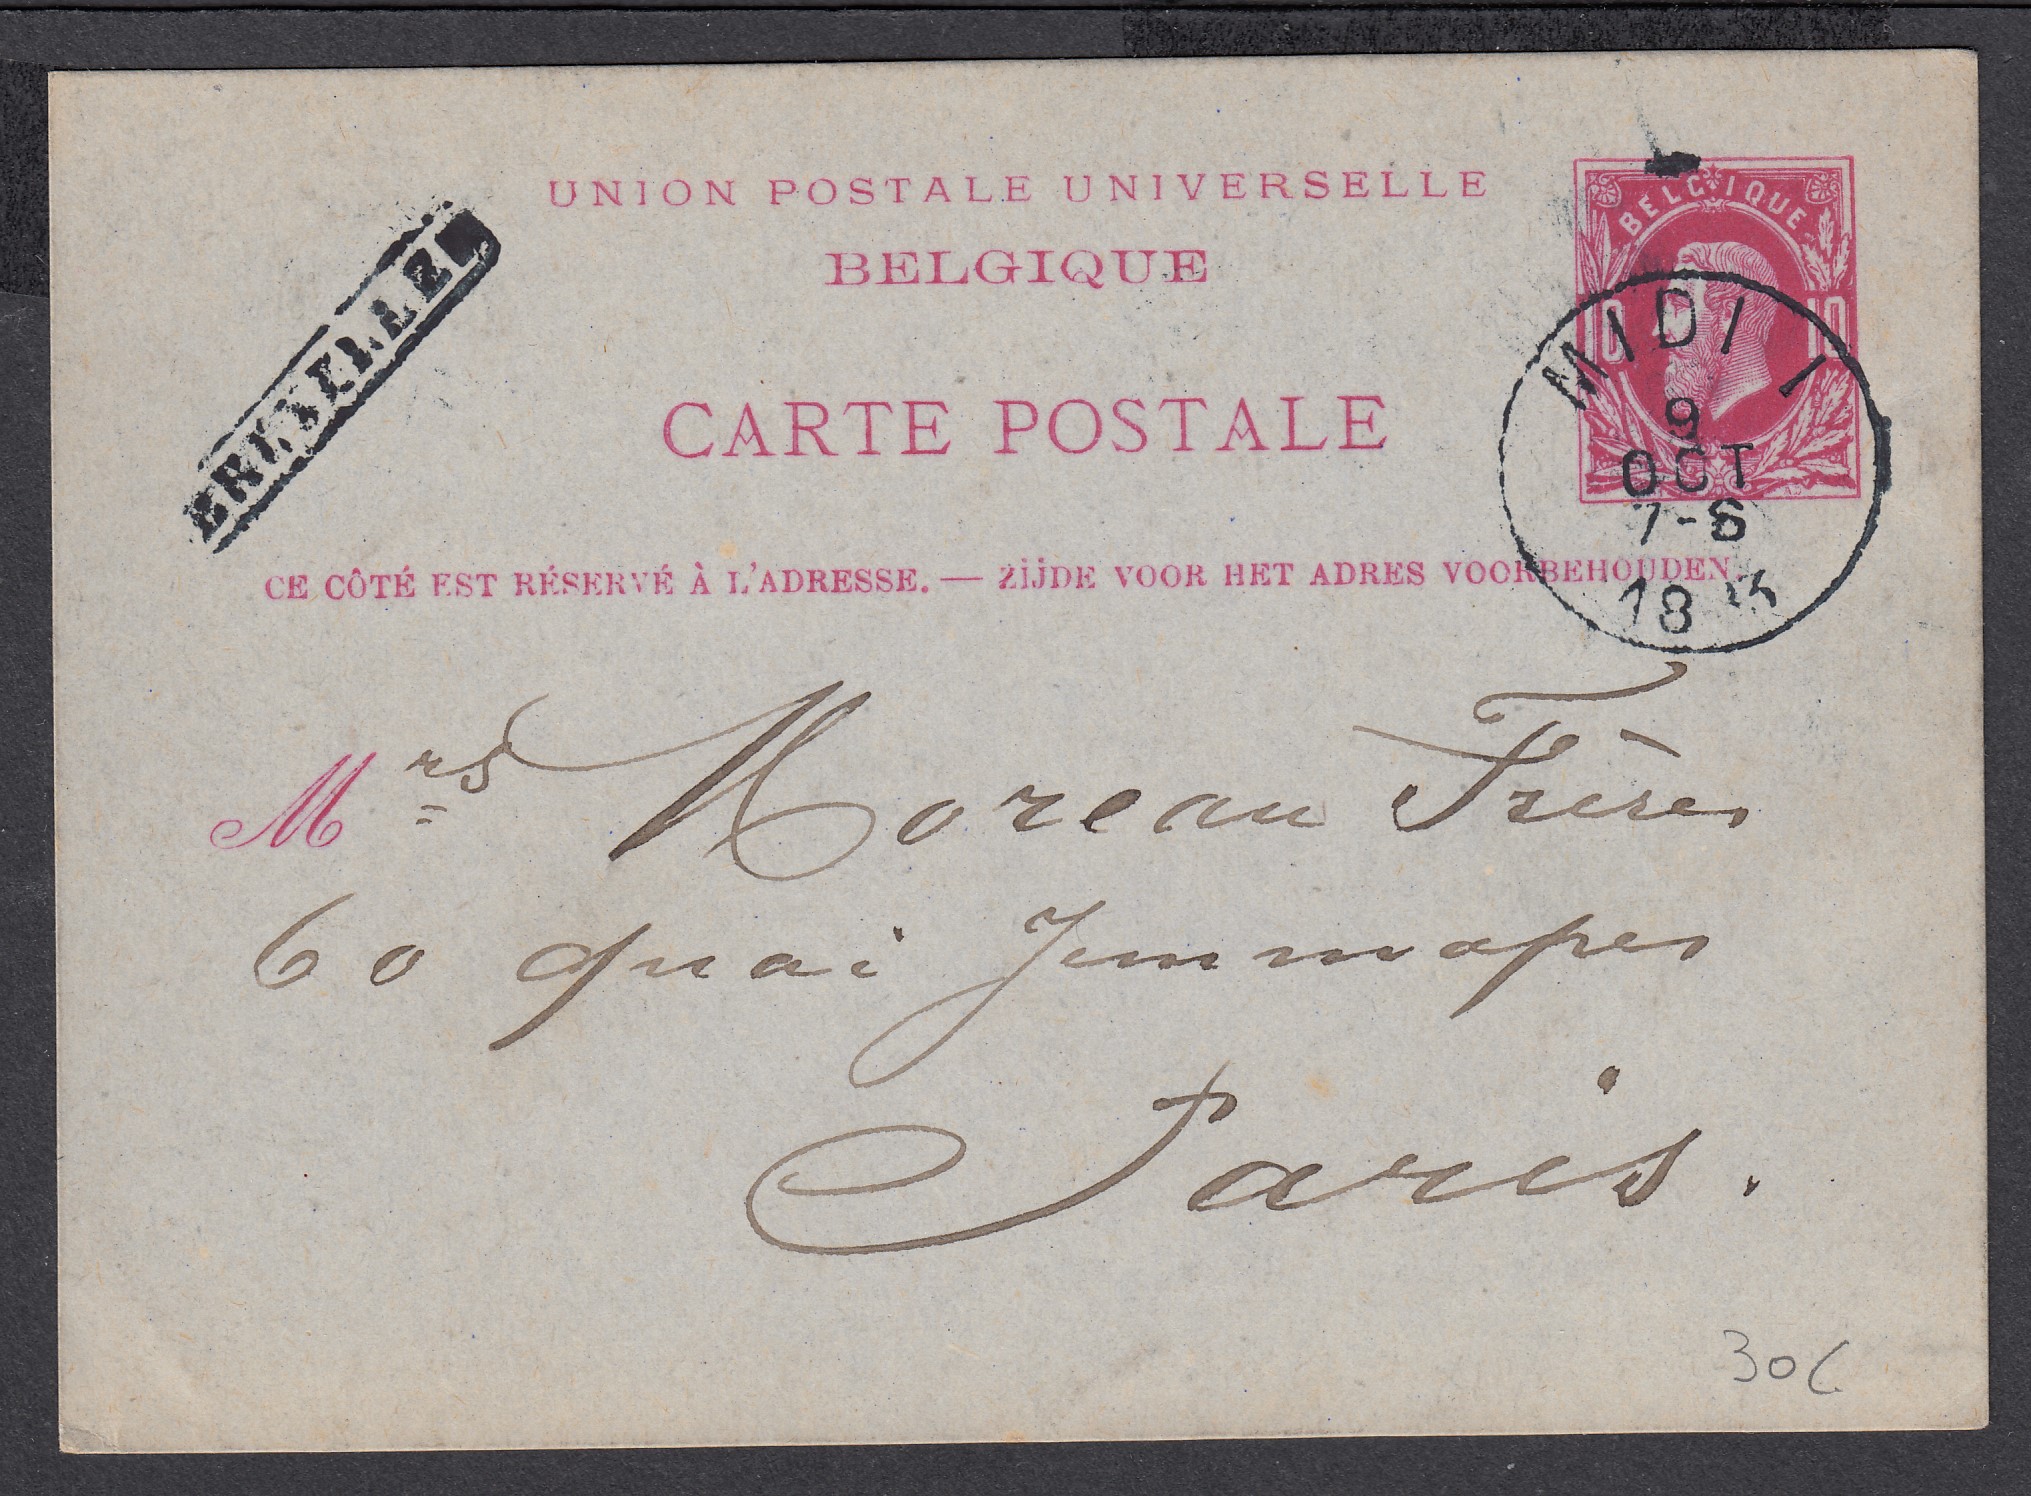 UNION POSTALE UNIVERSELLE
BELGIQUE
CARTE POSTALE
BELGIQUE
10 10
MIDI 1
9
OCT
7-S
18
CE CÔTÉ EST RÉSERVÉ À L'ADRESSE. — ZIJDE VOOR HET ADRES VOORBEHOUDEN.
Mrs Moreau Frères
60 quai Jemmapes
Paris.